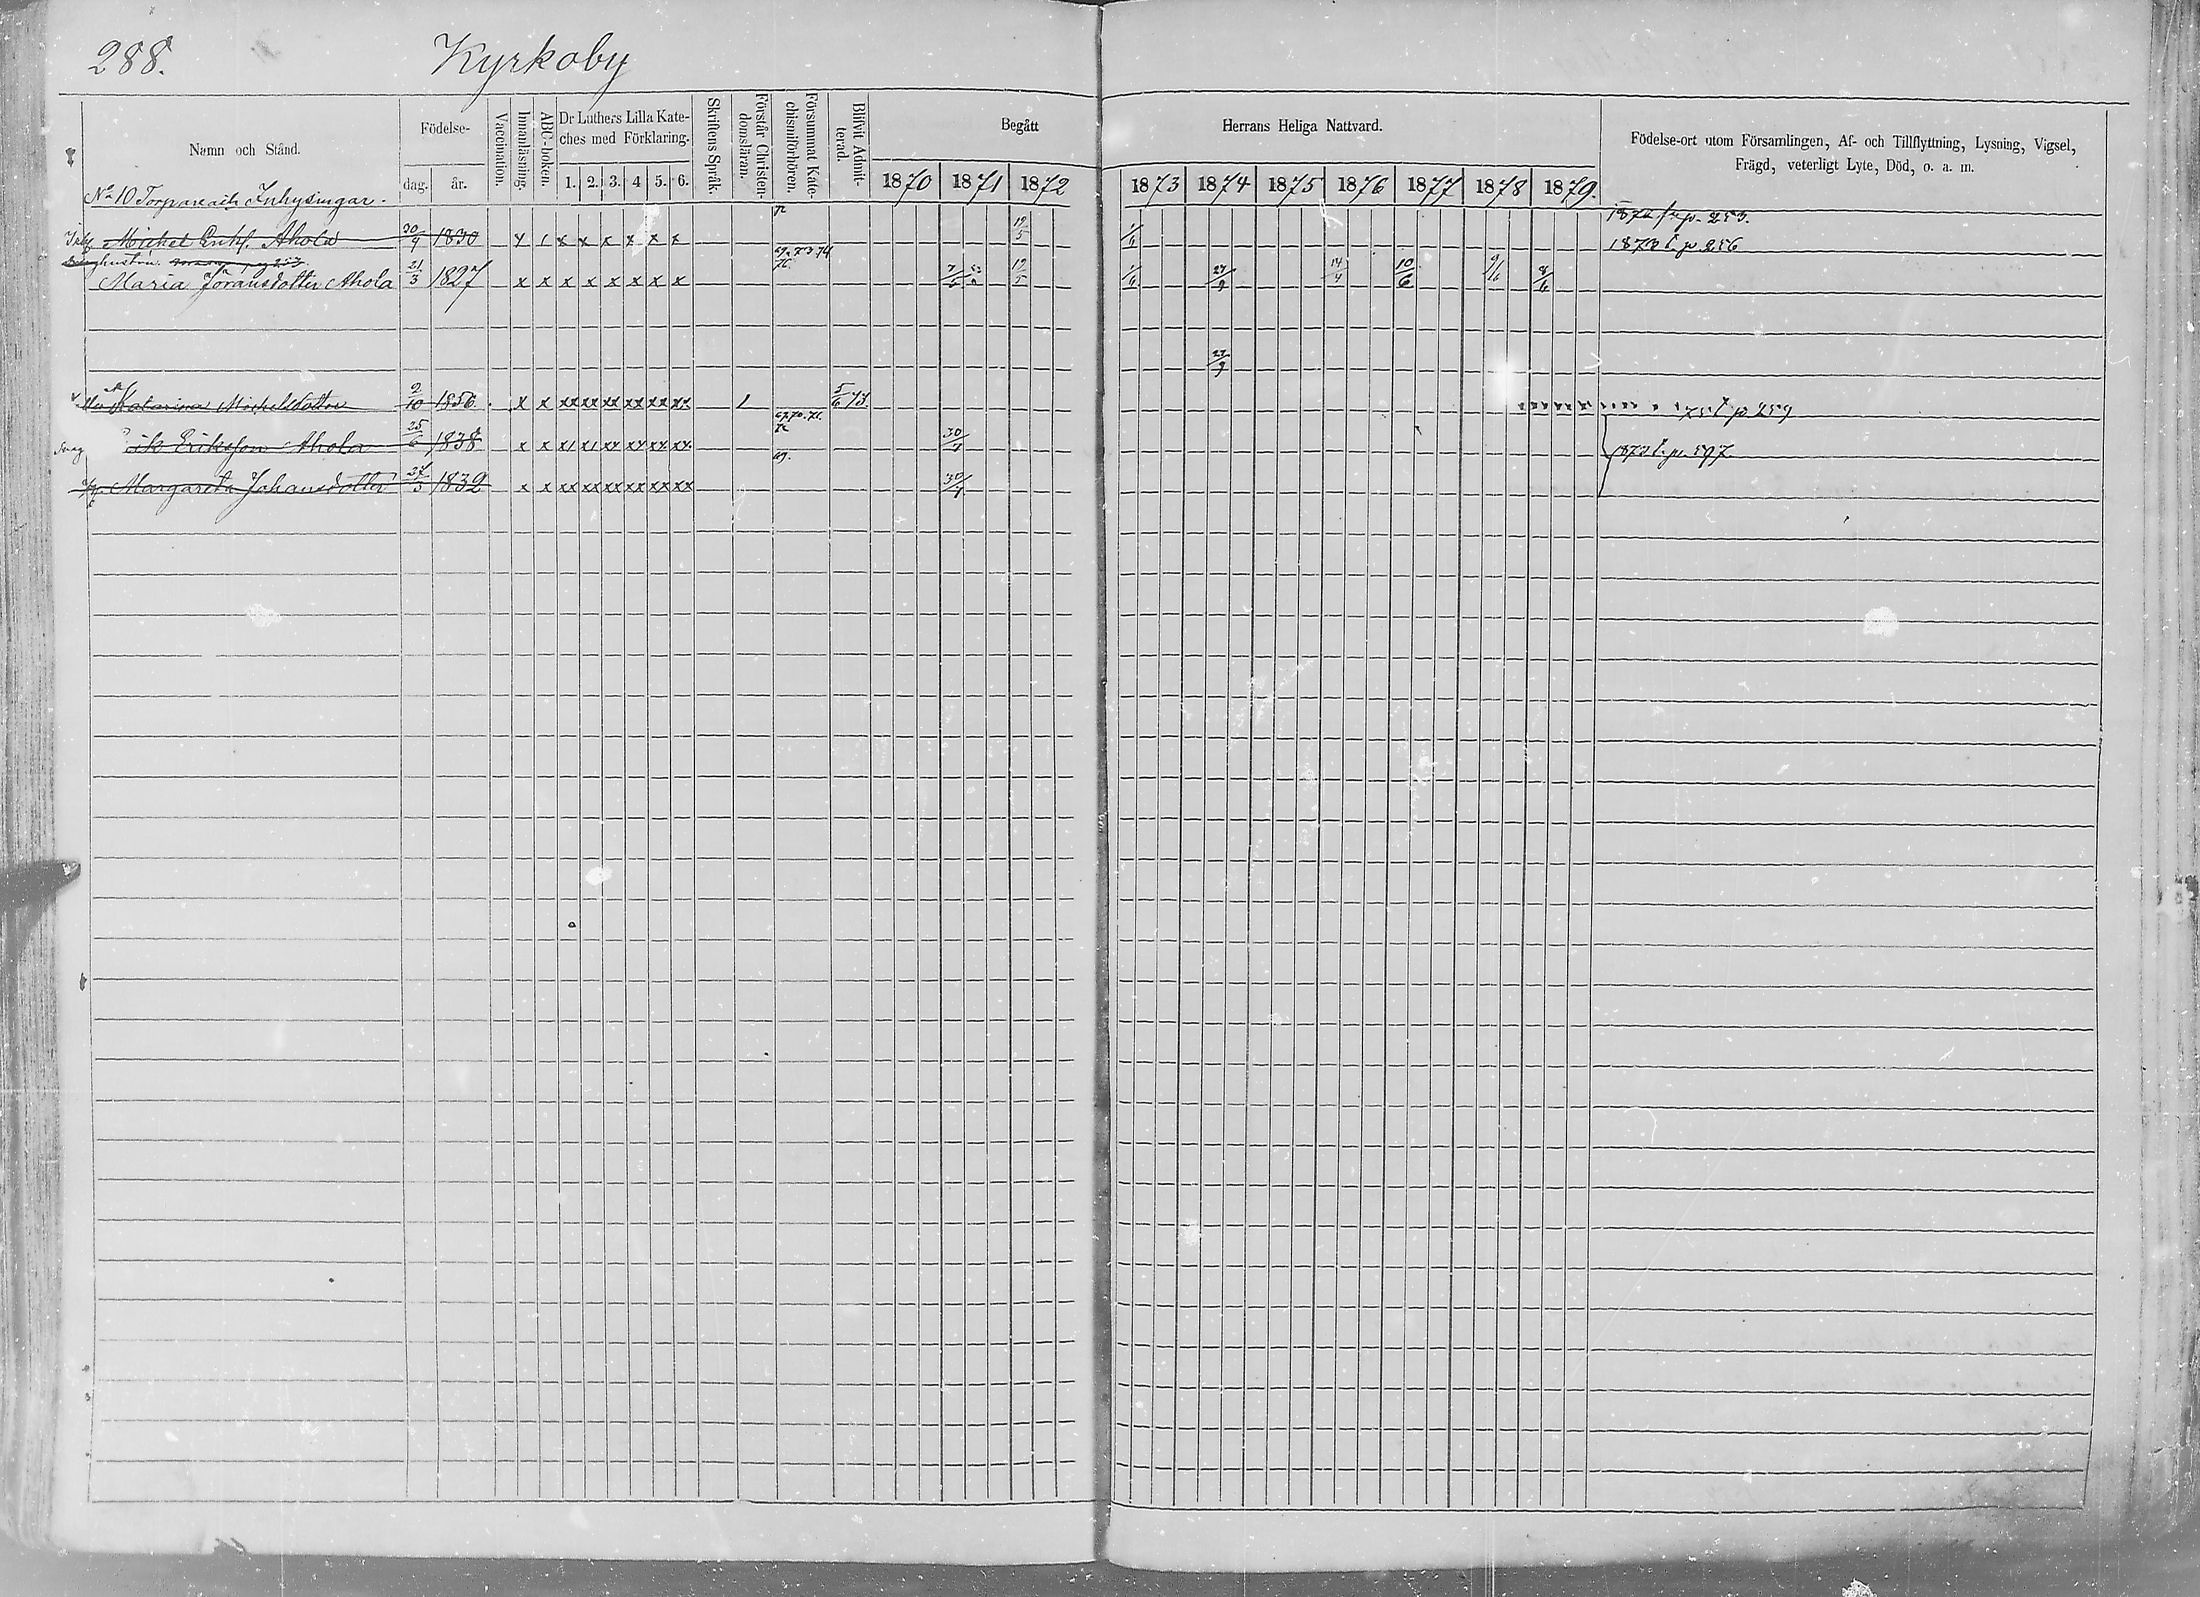 288. Kyrkoby
Namn och Stånd.
Födelse-
dag. år.
Vaccination.
Innanläsning.
ABC-boken.
Dr Luthers Lilla Kate-
ches med Förklaring.
1. 2. 3. 4 5. 6.
Skriftens Språk.
Förstår Christen-
domsläran.
Försummat Kate-
chismiförhören.
Blifvit Admit-
terad.
Begått Herrans Heliga Nattvard.
1870 1871 1872 1873 1874 1875 1876 1877 1878 1879.
Födelse-ort utom Församlingen, Af- och Tillflyttning, Lysning, Vigsel,
Frägd, veterligt Lyte, Död, o. a. m.
No 10 Torpare och Inhysingar.
p. 253.
Michel Ahola 30/9 1830 x x x x x x 12/5 1/6 1873 t. p 256
69. 73. 74
hustru
Maria Göransdotter Ahola 21/3 1827 x x x x x x x x 7/6 12/5 1/6 27/9 14/4 10/6 9/6 8/6
27/9
Katarina Michelsdotter 9/10 1856. x x xx xx xx xx xx xx 1 5/6 73 75 t. p 259
Eriksson Ahola 25/6 1838 x x x1 x1 xx xx xx xx 30/7 t. p. 597.
69.
Margareta Johansdotter 27/3 1832 x x xx xx xx xx xx xx 30/7